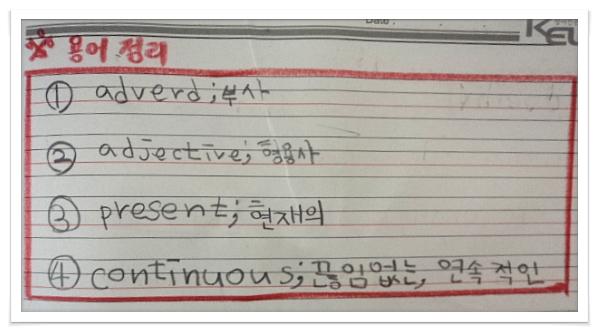 Date .
KEL
※ 용어 정리
① adverd ; 부사
② adjective; 형용사
③ present; 현재의
④ continuous; 끊임없는, 연속적인